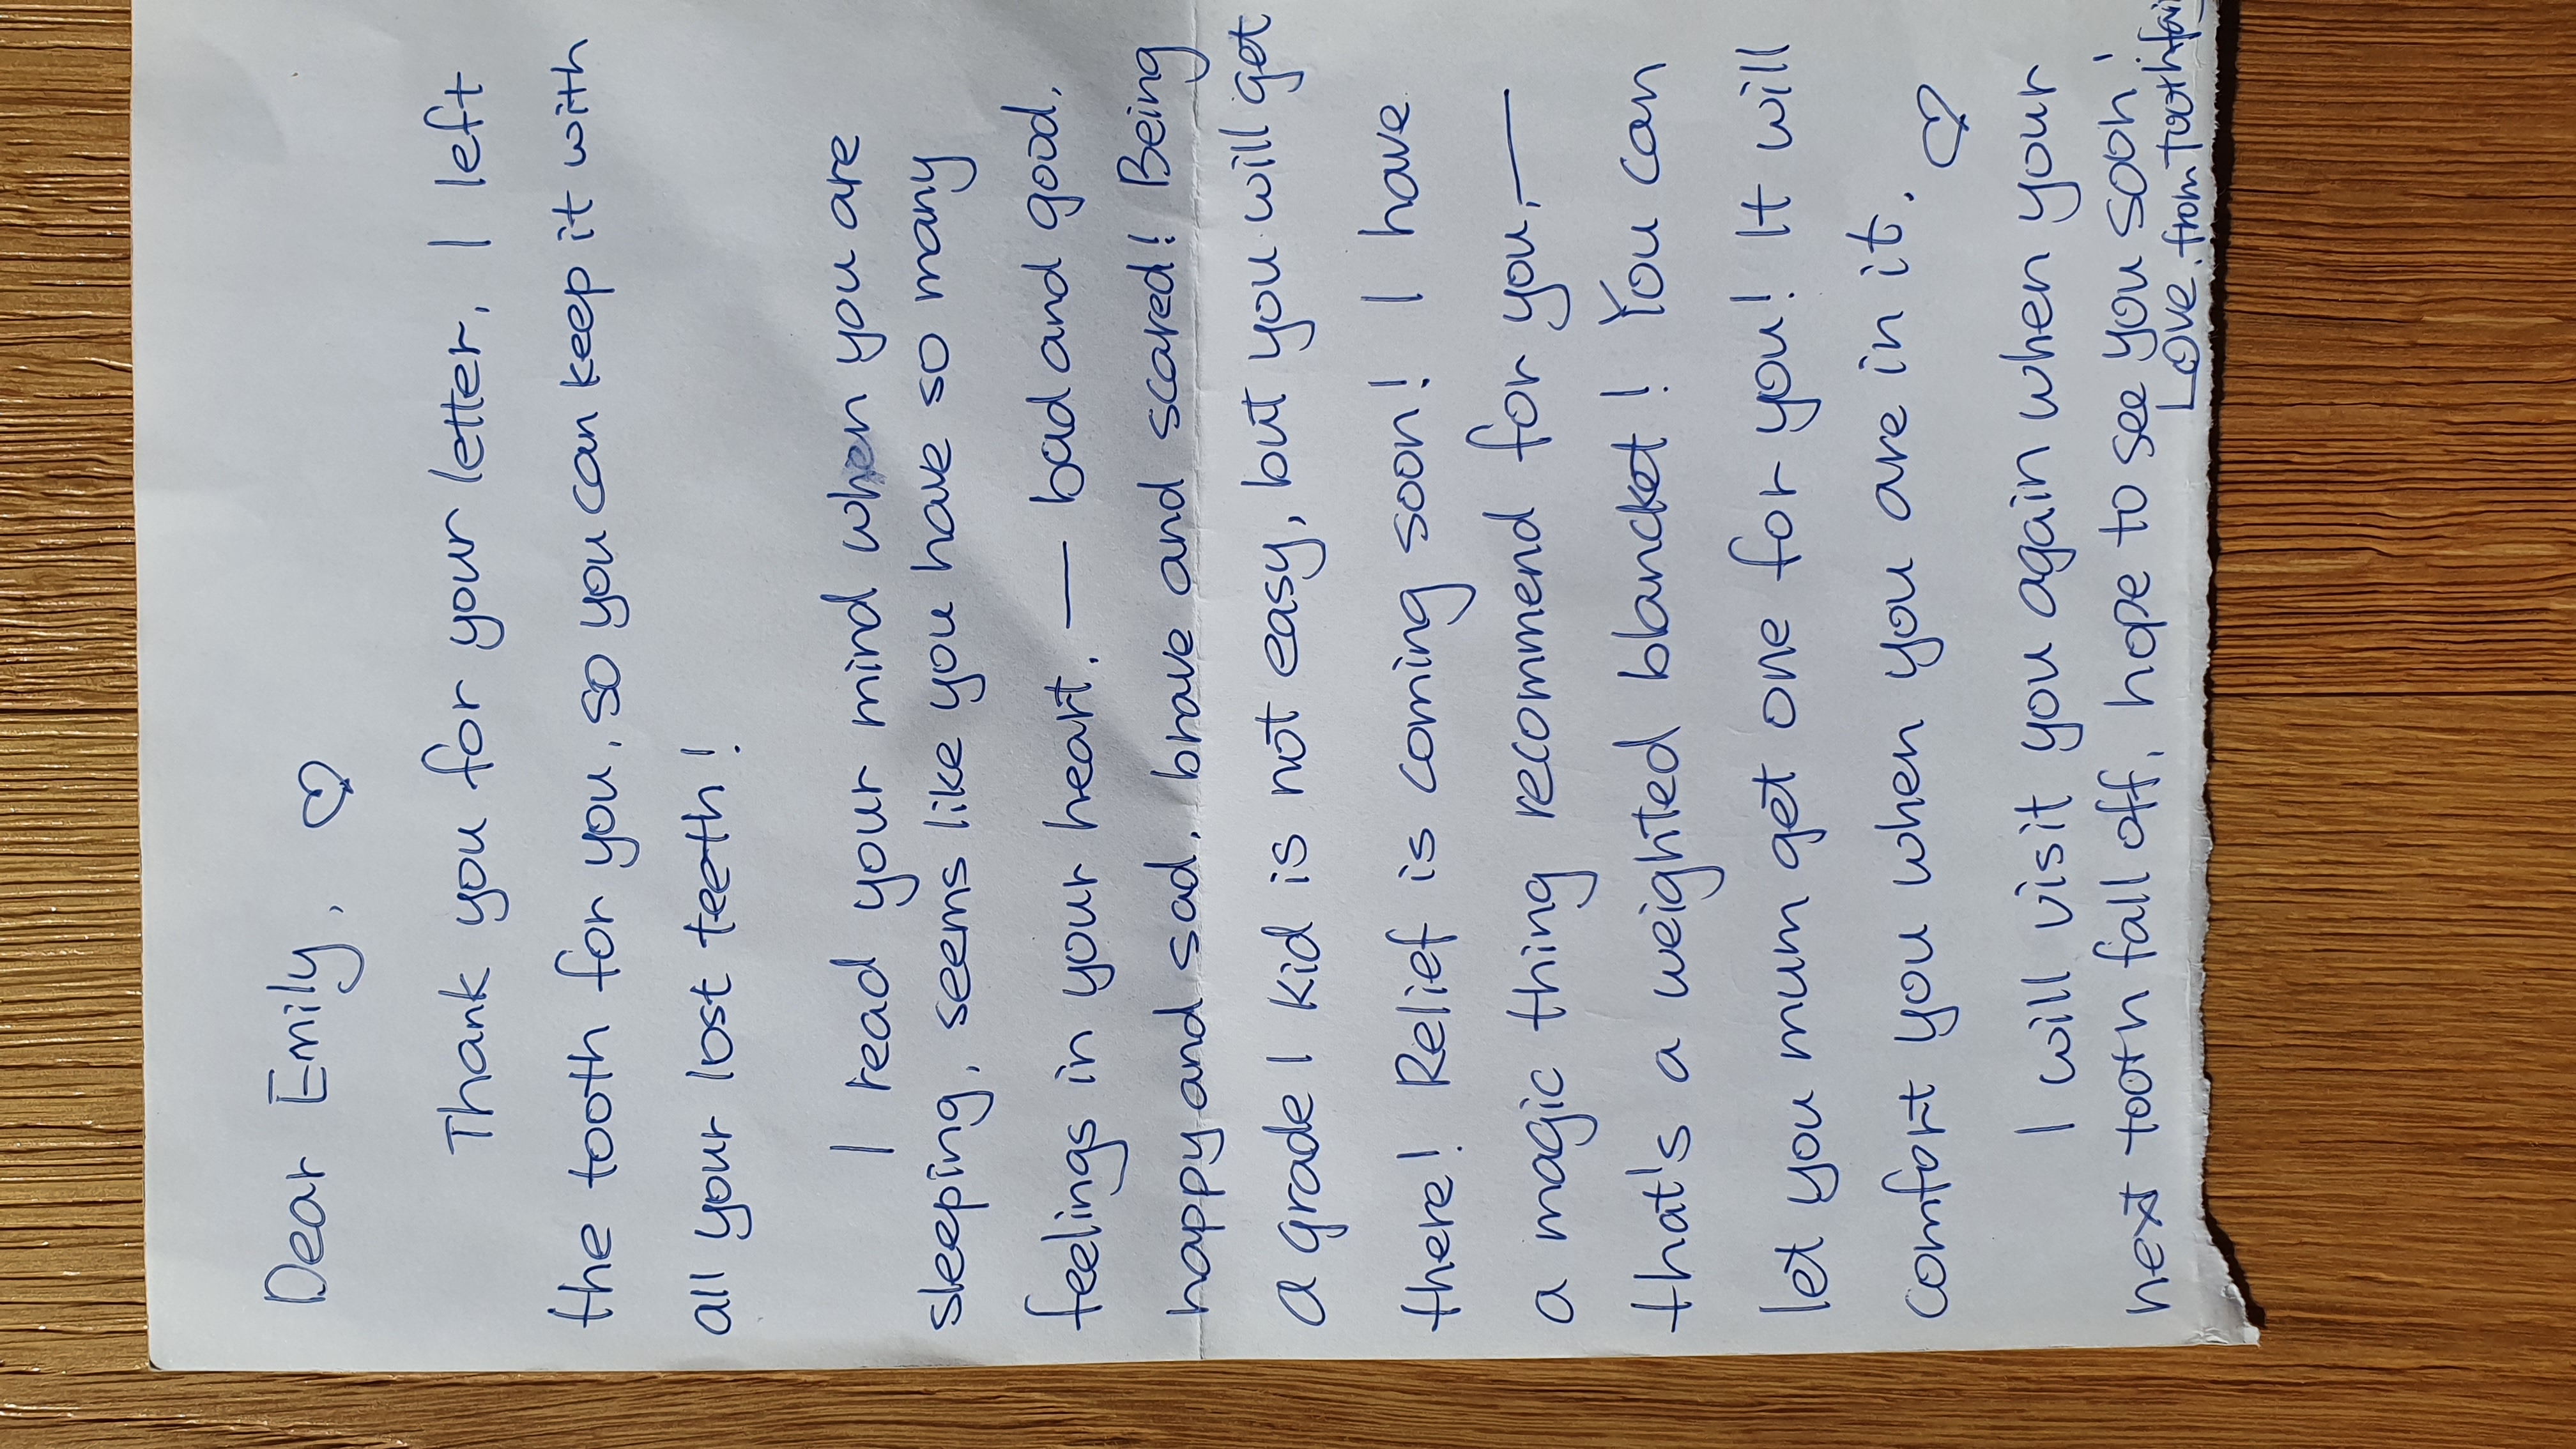 Dear Emily, ♡
Thank you for your letter, I left
the tooth for you, so you can keep it with
all your lost teeth!
I read your mind when you are
sleeping, seems like you have so many
feelings in your heart, — bad and good,
happy and sad, brave and scared! Being
a grade 1 kid is not easy, but you will get
there! Relief is coming soon! I have
a magic thing recommend for you, —
that's a weighted blancket! You can
let you mum get one for you! It will
comfort you when you are in it. ♡
I will visit you again when your
next tooth fall off, hope to see you soon!
Love, from